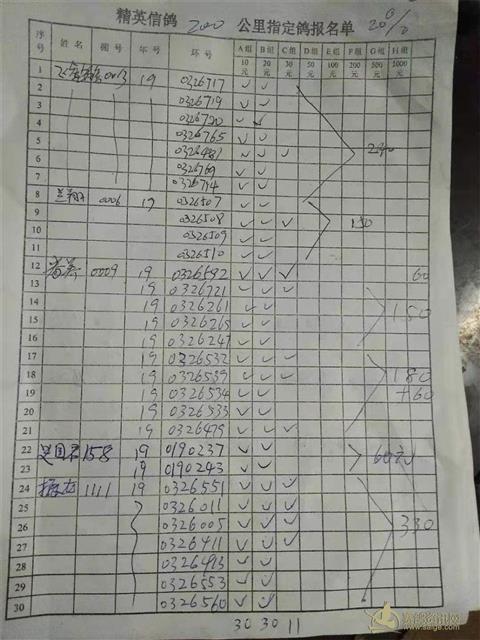 精英信鸽 200 公里指定鸽报名单 20%
序号 姓名 棚号 年号 环号 A组10元 B组20元 C组30元 D组50元 E组100元 F组200元 G组500元 H组1000元
1 0013 19 0326717 ✓ ✓
2 0326719 ✓ ✓
3 0326720 ✓ ✓
4 0326765 ✓ ✓
5 ✓ ✓ ✓
6 0326769 ✓ ✓
7 0326714 ✓ ✓
8 0006 19 0326507 ✓ ✓
9 0326508 ✓ ✓ ✓ 150
10 0326509 ✓ ✓
11 0326510 ✓ ✓
12 0009 19 0326592 ✓ ✓ ✓ 60
13 19 0326721 ✓ ✓ ✓
14 19 0326261 ✓ ✓
15 19 0326265 ✓ ✓ 150
16 19 0326247 ✓ ✓
17 19 0326532 ✓ ✓ ✓
18 19 0326539 ✓ ✓ ✓ 180
19 19 0326534 ✓ ✓ +60
20 19 0326533 ✓ ✓
21 19 0326479 ✓ ✓ ✓
22 158 19 0190237 ✓ ✓
23 19 0190243 ✓ ✓ 60元
24 1111 19 0326551 ✓ ✓ ✓
25 0326011 ✓ ✓ ✓
26 0326005 ✓ ✓ ✓ 330
27 0326411 ✓ ✓ ✓
28 0326413 ✓ ✓
29 0326553 ✓ ✓
30 0326560 ✓ ✓
30 30 11